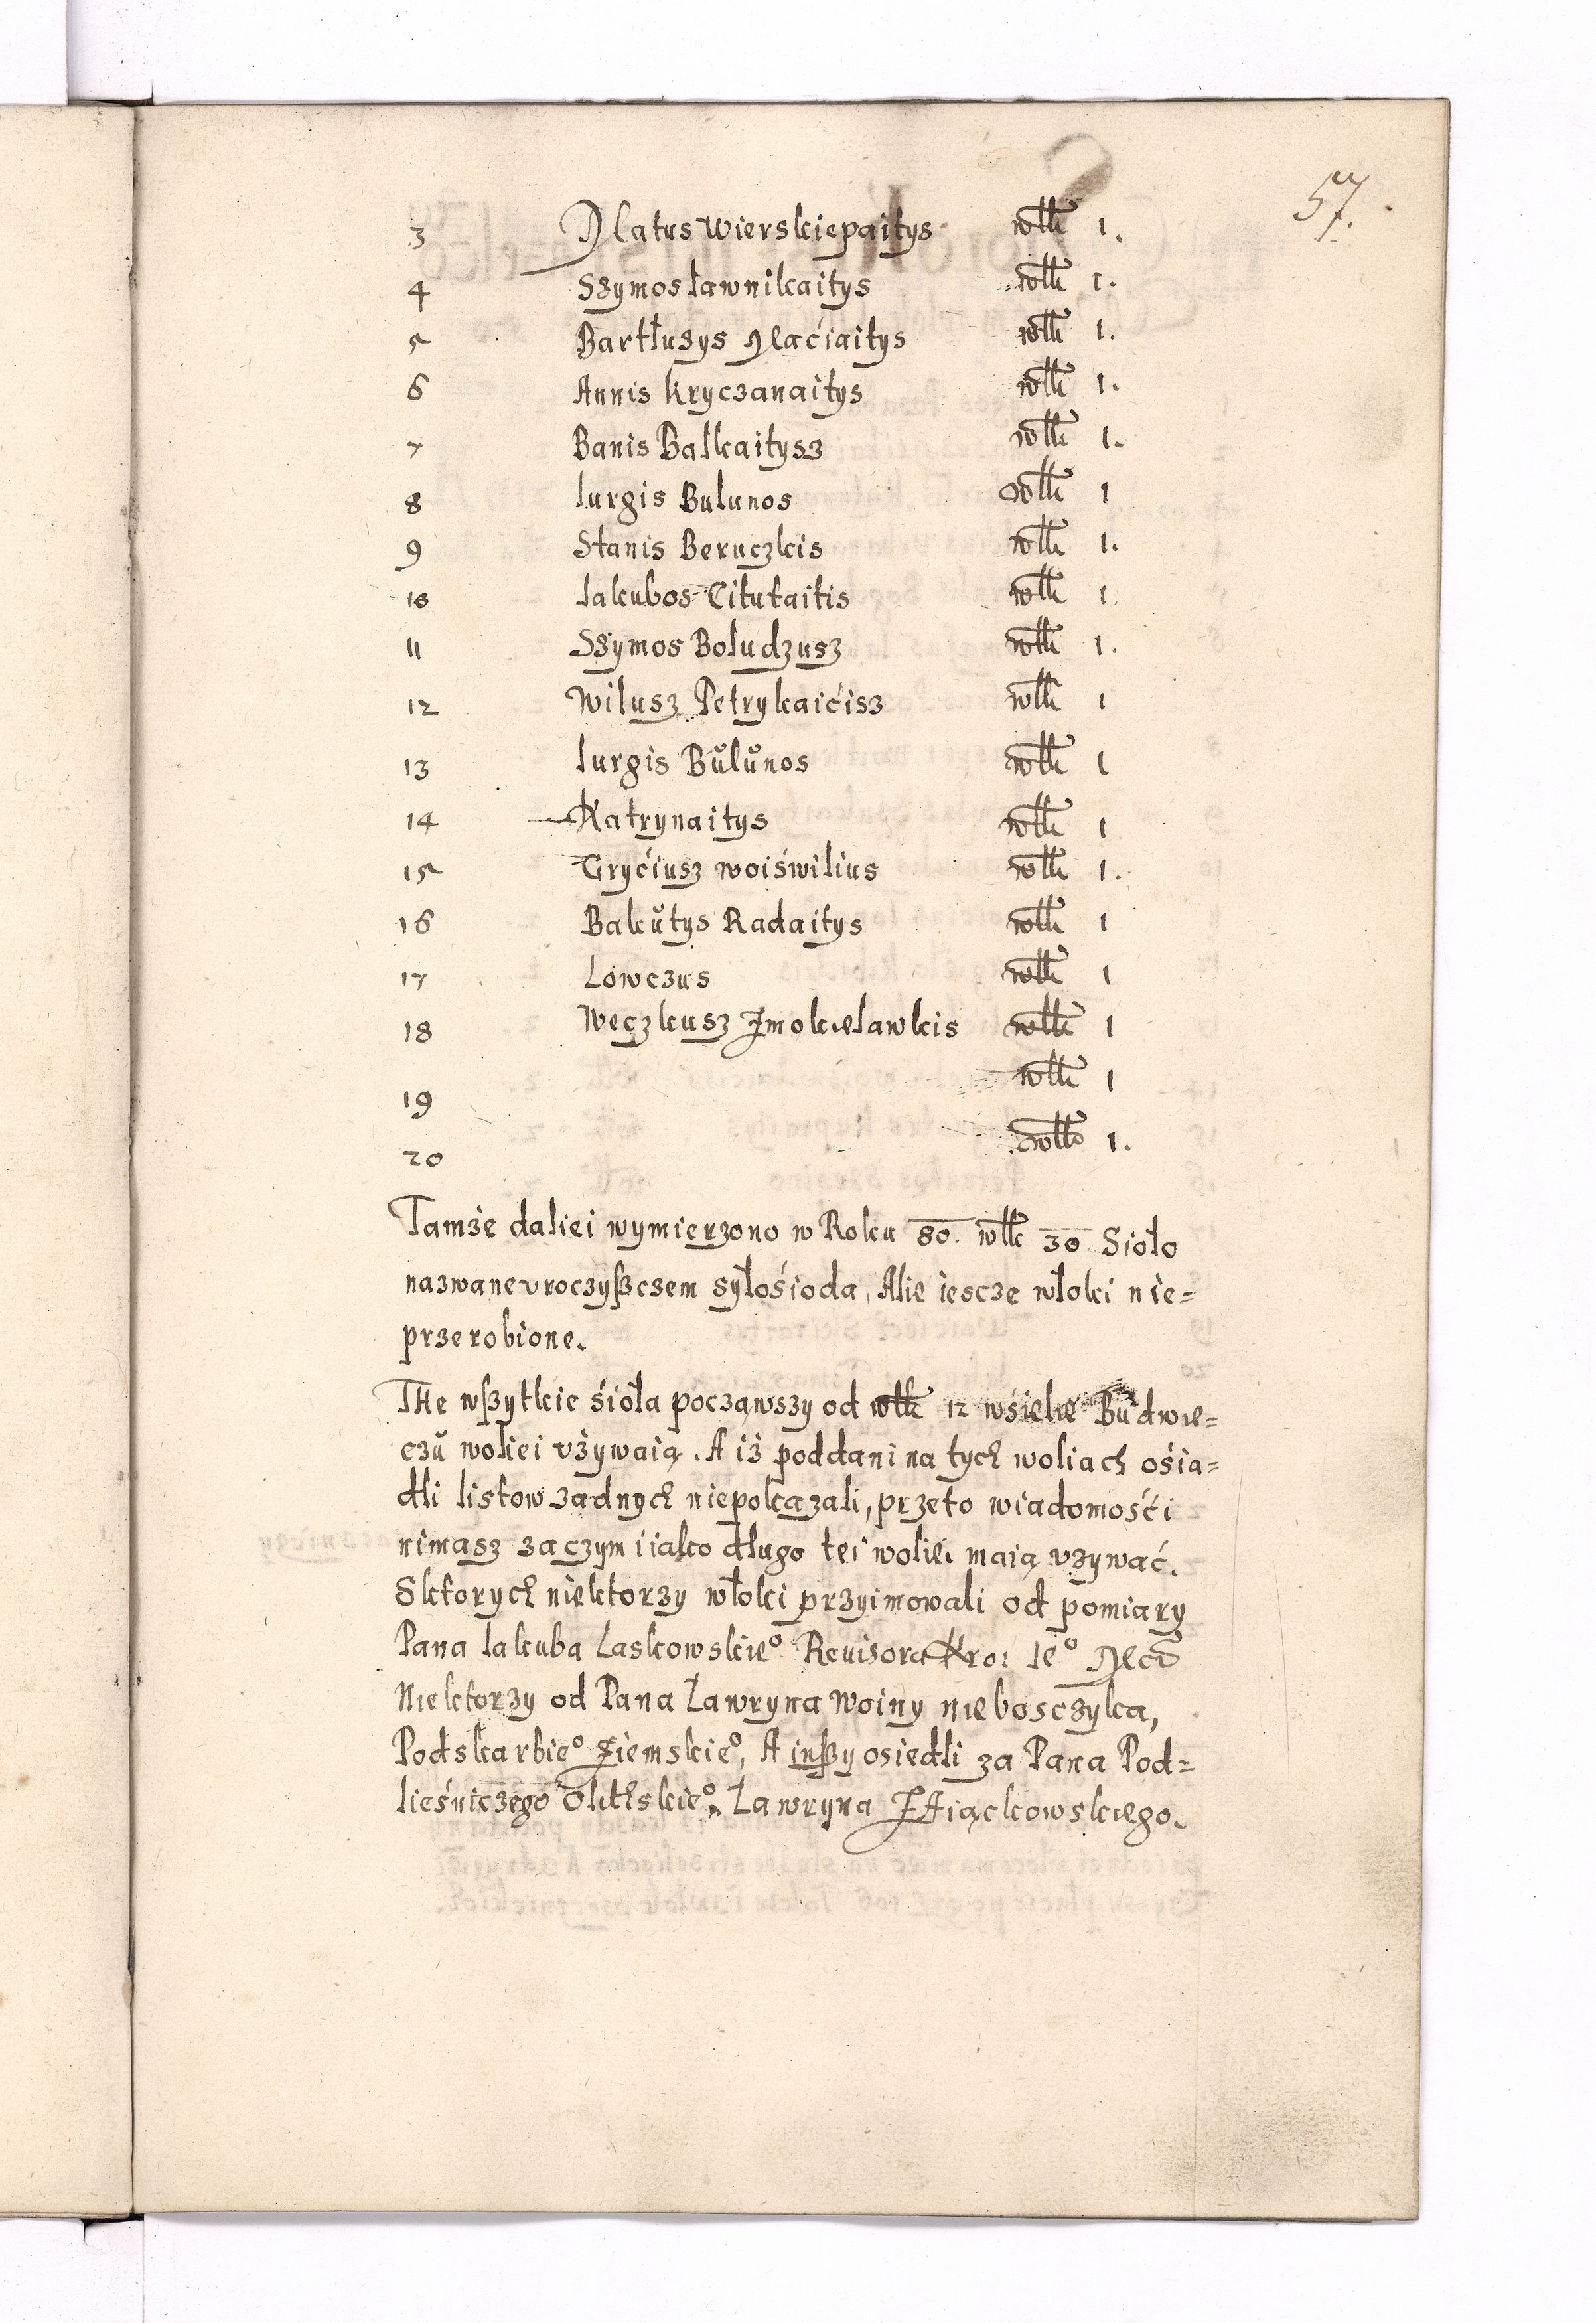 57.
3 Matus Wierskiepaitys włk 1.
4 Szymos Ławnikaitys włk 1.
5 Bartłuzys Maciaitys włk 1.
6 Annis Kryczanaitys włk 1.
7 Banis Balkaitysz włk 1.
8 Iurgis Bulunos włk 1
9 Stanis Beruczkis włk 1.
10 Iakubos Citutaitis włk 1
11 Szymos Boludzusz włk 1.
12 Wilusz Petrykaićisz włk 1
13 Iurgis Bŭlŭnos włk 1
14 Katrynaitys włk 1
15 Gryćiusz Woiświlius włk 1.
16 Bakŭtys Radaitys włk 1
17 Lowczus włk 1
18 Węczkusz Jmokielawkis włk 1
19 włk 1
20 włk 1.
Tamże daliei wymierzono w Roku 80. włk 30 Sioło
nazwane vroczyßczem syłośioda, Alie iescze włoki nie=
przerobione.
The wßytkie śioła począwszy od włk 12 wsielie Bŭdwie=
czŭ woliei vżywaią. A iż poddani na tych woliach ośia=
dli listow żadnych niepokazali, przeto wiadomośći
nimasz zaczym i iako długo tei woliei maią vżywać.
Sktorych niektorzy włoki przyimowali od pomiary
Pana Iakuba Laskowskie° Reuizora Kro: Ie° Mći
Niektorzy od Pana Ławryna Woiny nieboszczyka,
Podskarbie° Ziemskie°, A inßy osiedli za Pana Pod=
lieśniczego Olithskie°, Ławryna Piąckowskiego.